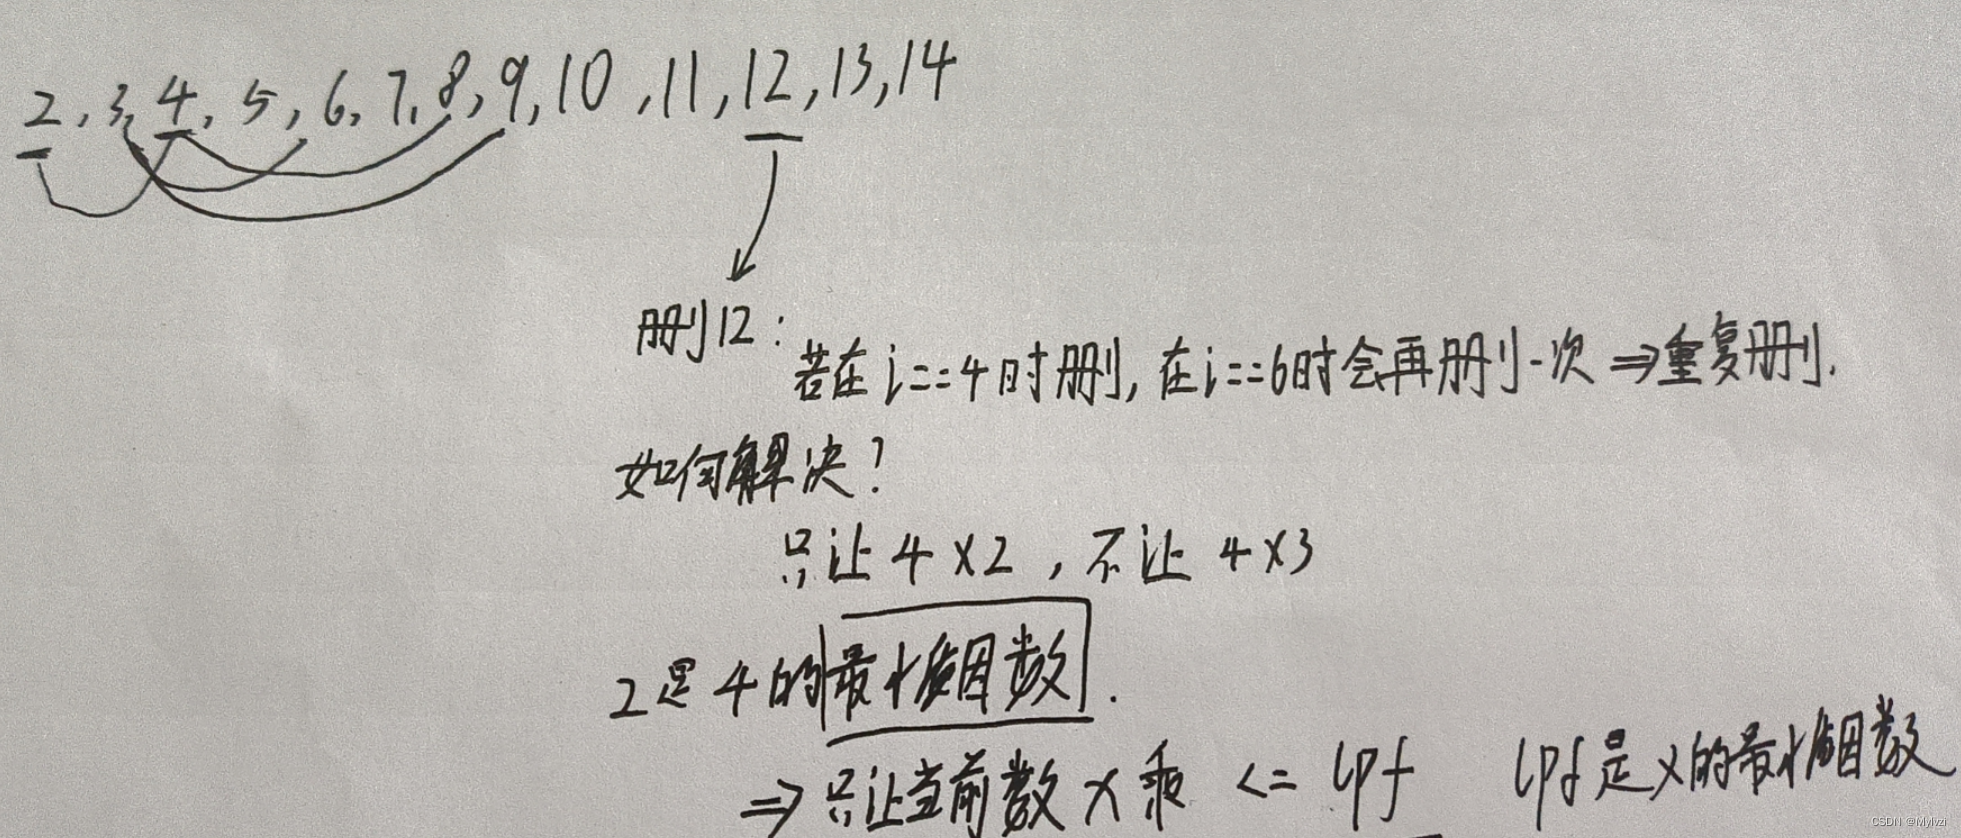 2,3,4,5,6,7,8,9,10,11,12,13,14
删12:
若在i==4时删,在i==6时会再删一次⇒重复删.
如何解决?
只让4×2,不让4×3
2是4的最小质因数.
⇒只让当前数x乘<=lpf lpf是x的最小质因数
CSDN @Mylvzi